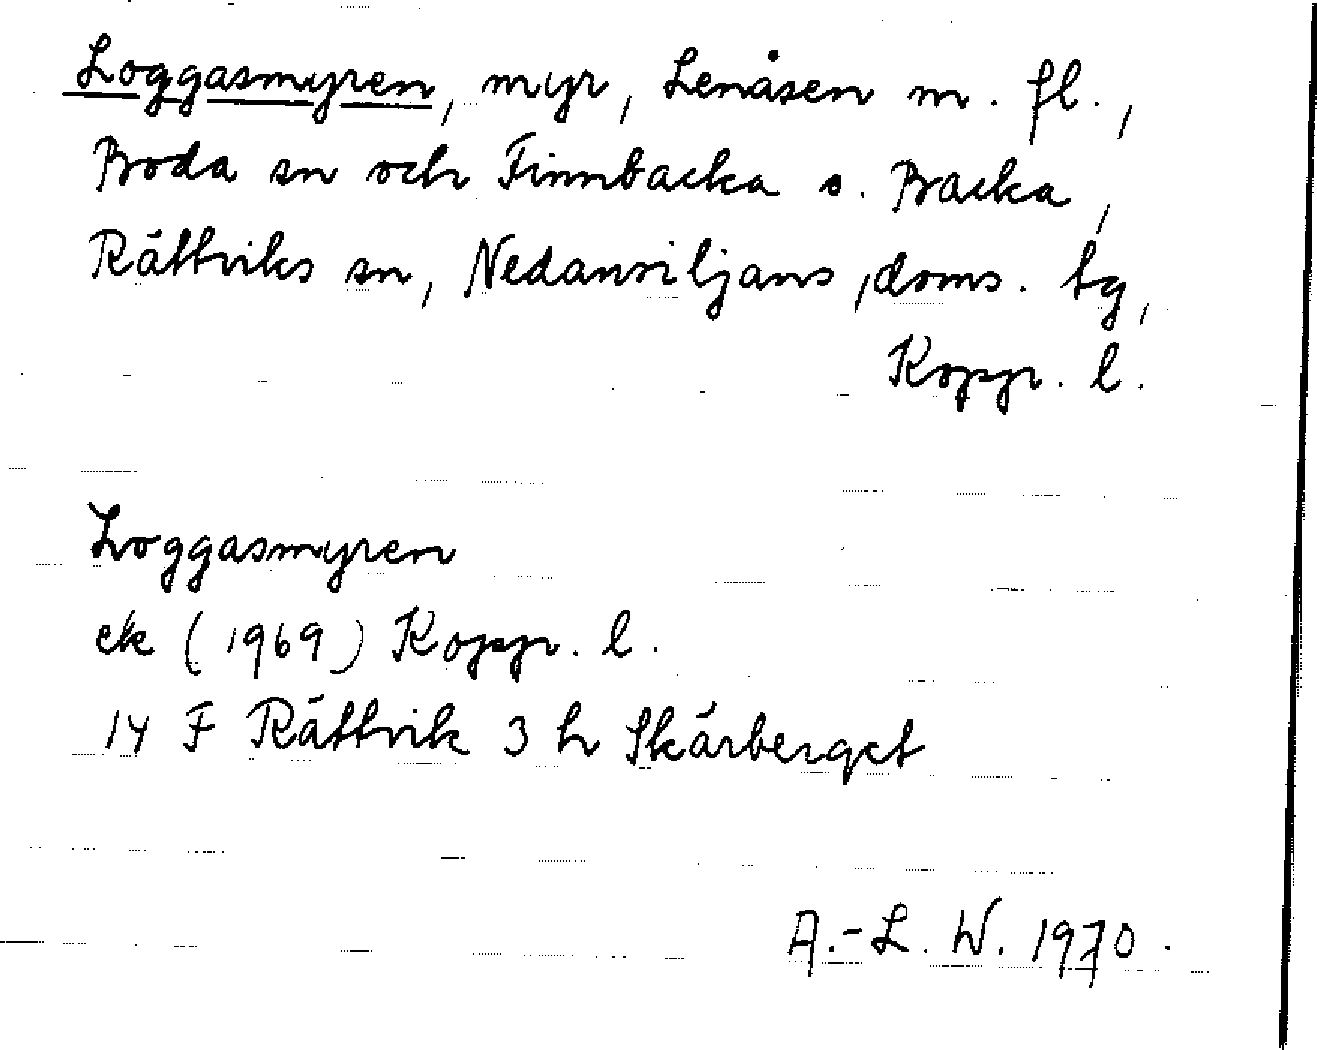 Loggasmyren, myr, Lenåsen m. fl.,
Boda sn och Finnbacka o. Backa,
Rättviks sn, Nedansiljans, doms. tg,
Koppr. l.
Loggasmyren
ek (1969) Koppr. l.
14 F Rättvik 3 h Skärberget
A.-L. W. 1970.